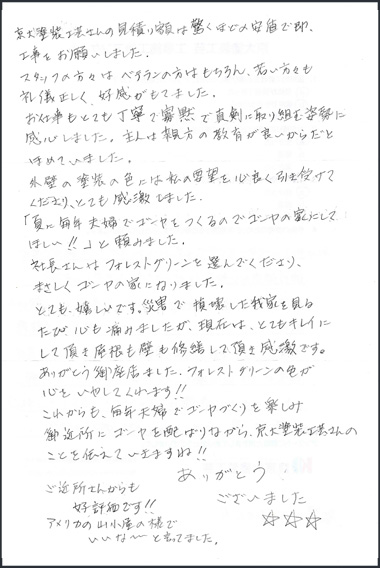 京大塗装工芸さんの見積り額は驚くほどの安値で即、
工事をお願いしました。
スタッフの方々はベテランの方はもちろん、若い方々も
礼儀正しく、好感がもてました。
お仕事もとても丁寧で寡黙で真剣に取り組む姿勢に
感心しました。主人は親方の教育が良いからだと
ほめていました。
外壁の塗装の色には私の要望を心良く引き受けて
くださり、とても感激しました。
「夏に毎年夫婦でゴーヤをつくるのでゴーヤの家にして
ほしい!!」と頼みました。
社長さんはフォレストグリーンを選んでくださり、
まさしくゴーヤの家になりました。
とても、嬉しいです。災害で損壊した我家を見る
たび心も痛みましたが、現在は、とてもキレイに
して頂き屋根も壁も修繕して頂き感激です。
ありがとう御座居ました。フォレストグリーンの色が
心をいやしてくれます!!
これからも、毎年夫婦でゴーヤづくりを楽しみ
御近所にゴーヤを配ばりながら、京大塗装工芸さんの
ことを伝えていきますね!!
ありがとう
ございました
☆☆☆
ご近所さんからも
好評価です!!
アメリカの山小屋の様で
いいな〜と言ってました。